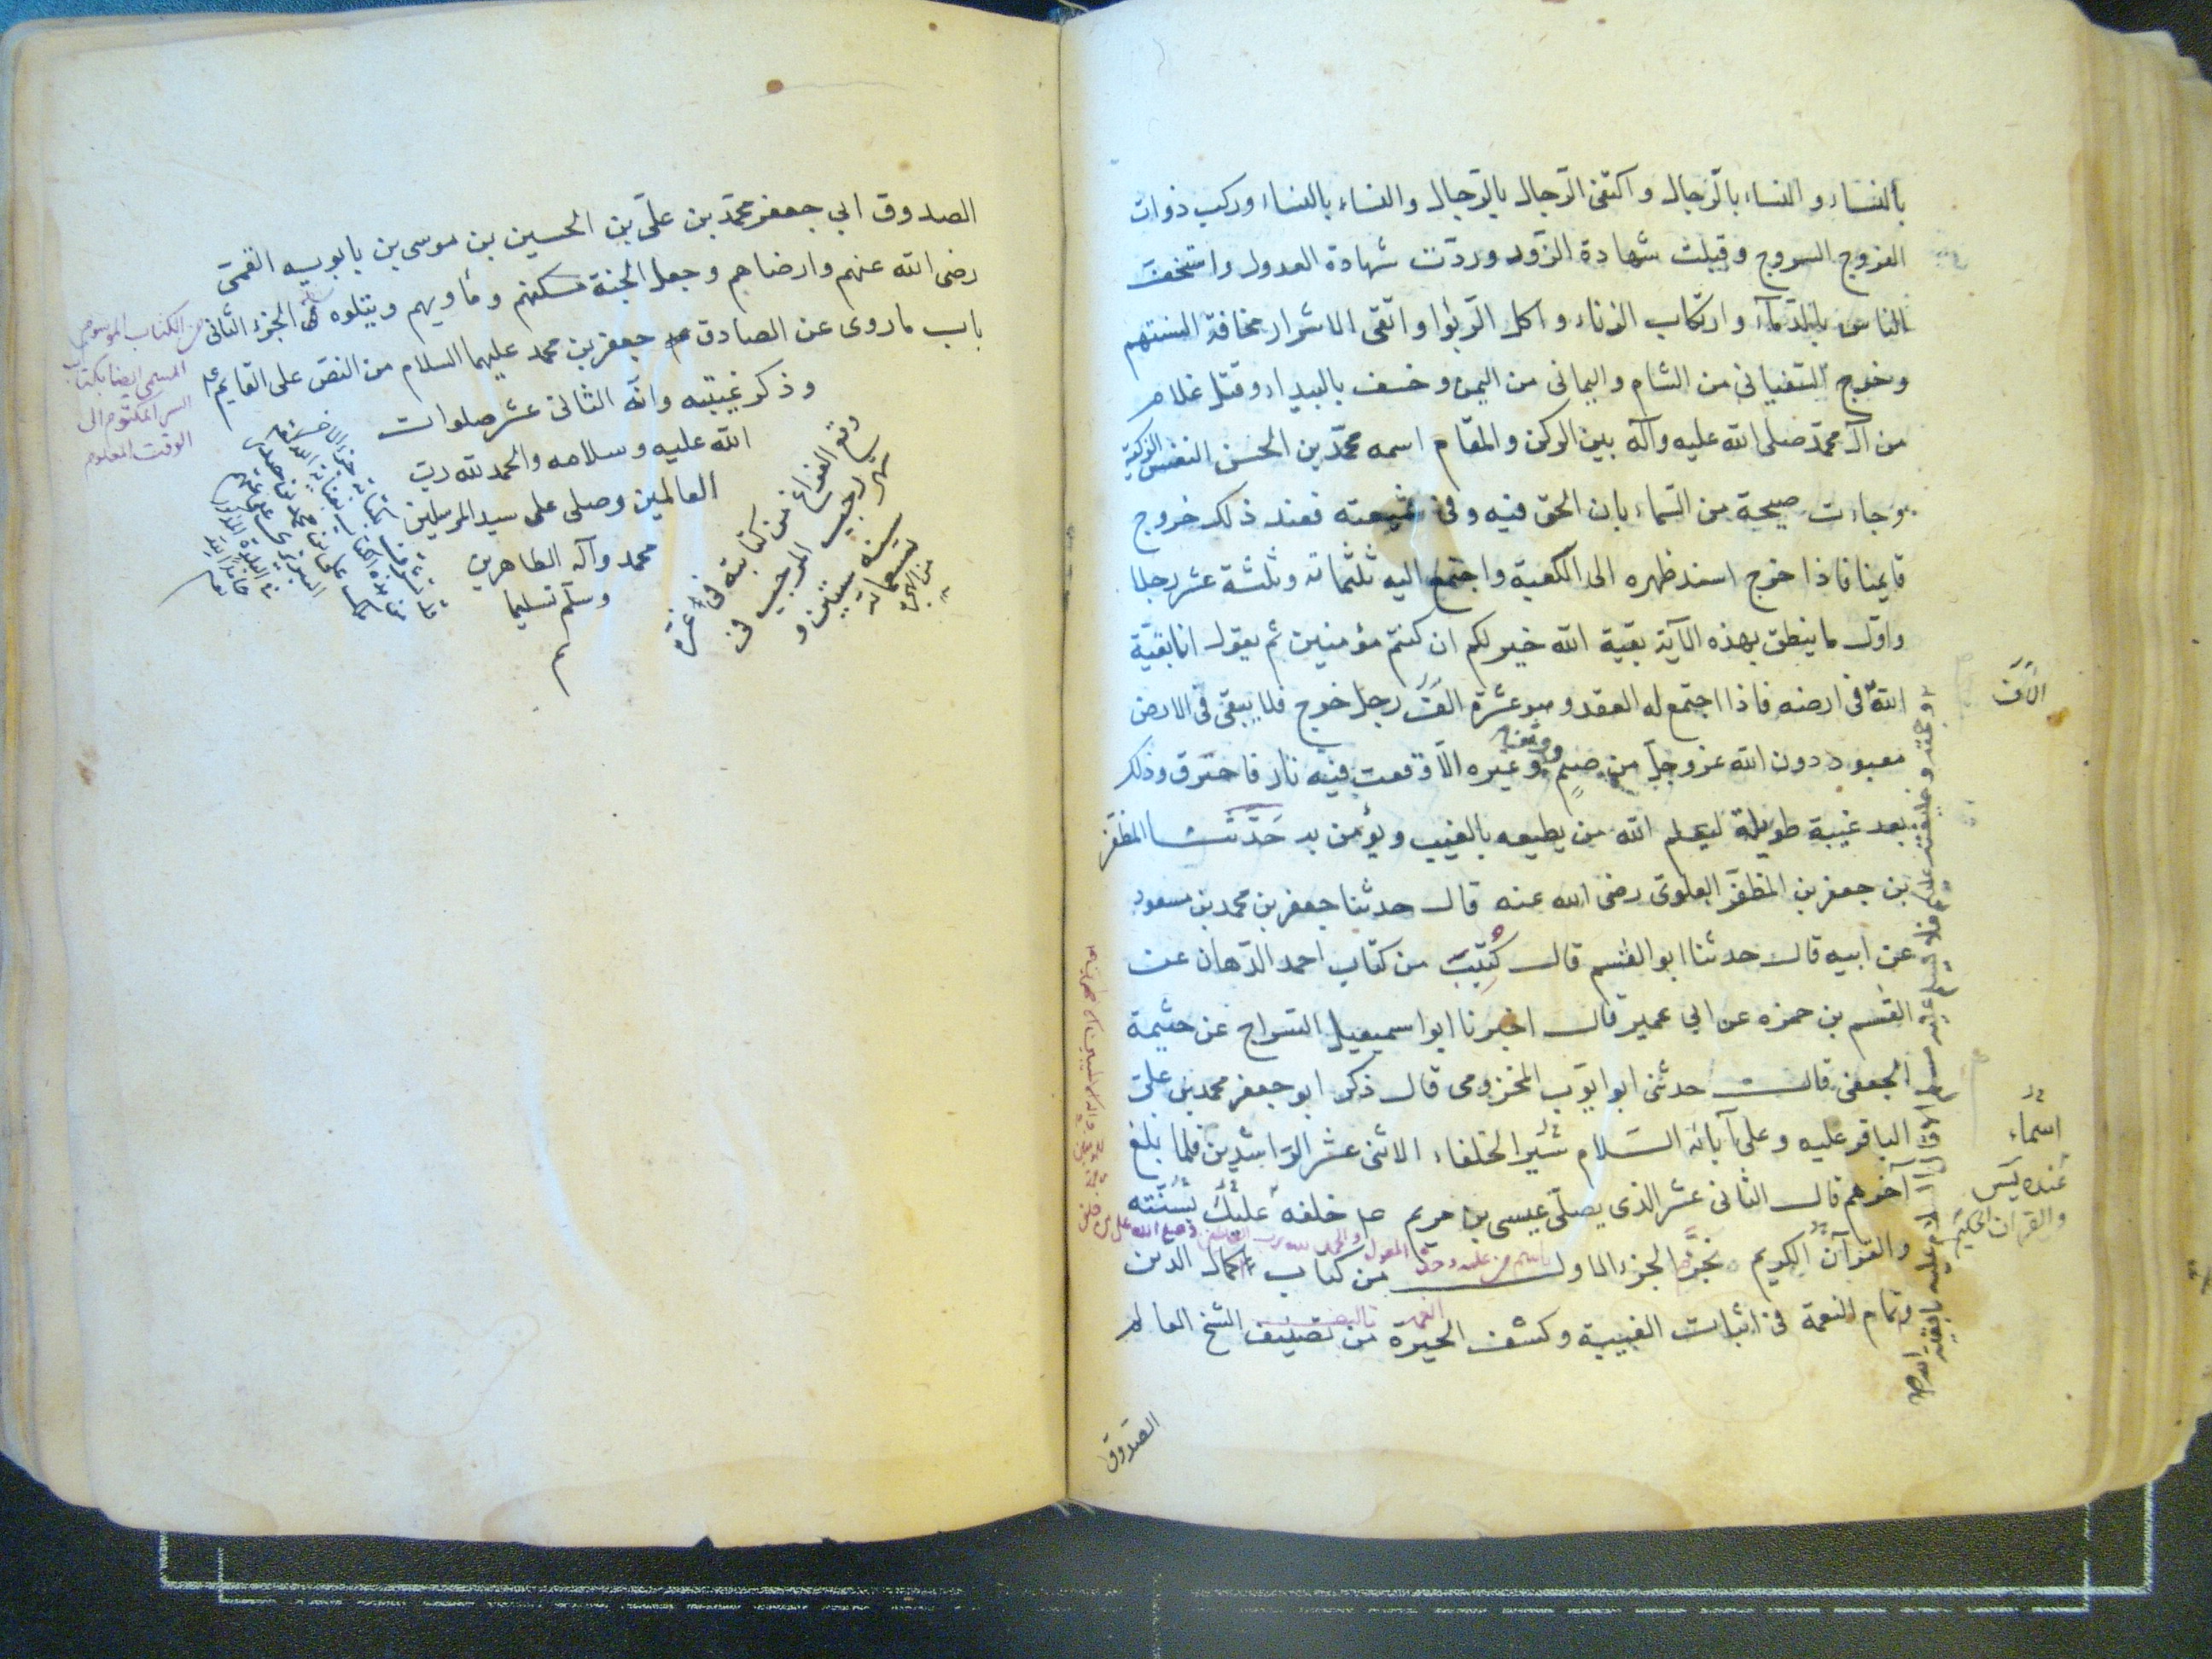 بالنساء والنساء بالرّجال واكتفى الرّجال بالرّجال والنساء بالنساء وركب ذوات
الفروج السروج وقبلت شهادة الزّور وردّت شهادة العدول واستخفّ
الناس بالدّمآء وارتكاب الزناء واكل الرّبوا واتّقى الاشرار مخافة السنتهم
وخرج السّفيانى من الشام واليمانى من اليمن وخسف بالبيداء وقتل غلام
من آل محمّد صلى الله عليه وآله بين الركن والمقام اسمه محمّد بن الحسن النفس الزكيّة
وجاءت صيحة من السّماء بان الحق فيه وفى شيعته فعند ذلك خروج
قايمنا فاذا خرج اسند ظهره الى الكعبة واجتمع اليه ثلثمائة وثلثة عشر رجلا
واوّل ما ينطق بهذه الآية بقيّة الله خير لكم ان كنتم مؤمنين ثم يقول انا بقيّة
الله فى ارضه فاذا اجتمع له العقد وهو عشرة الف رجل خرج فلا يبقى فى الارض
الآف
معبود دون الله عزوجلّ من صنم ووثن وغيره الّا وقعت فيه نار فاحترق وذلك
بعد غيبة طويلة ليعلم الله من يطيعه بالغيب ويؤمن به حَدّثَنا المظفّر
بن جعفر بن المظفّر العلوى رضى الله عنه قال حدثنا جعفر بن محمد بن مسعود
عن ابيه قال حدثنا ابو القسم قال كُتِبَ من كتاب احمد الدّهان عن
القسم بن حمزه عن ابى عمير قال اخبرنا ابو اسمعيل السّراج عن خيثمة
الجعفى قال حدثنى ابو ايّوب المخزومى قال ذكر ابو جعفر محمد بن علىّ
الباقر عليه وعلى آبائه السّلام سير الخلفاء الاثنى عشر الرّاشدين فلما بلغ
اسماء
آخرهم قال الثانى عشر الذى يصلّى عيسى بن مريم ع خلفه عليك بسنّته
عنده يس
والقران الحكيم
والقرآن الكريم نجز الجزء الاول من كتاب اكمال الدين
وتمام النعمة فى اثبات الغيبة وكشف الحيرة من تصنيف الشيخ العالم
الصّدوق
الصدوق ابى جعفر محمّد بن علىّ بن الحسين بن موسى بن بابويه القمىّ
رضى الله عنهم وارضاهم وجعل الجنة مسكنهم ومأويهم ويتلوه فى الجزء الثانى
من الكتاب الموسوم
المسمى ايضا بكتاب
السر المكتوم الى
الوقت المعلوم
باب ما روى عن الصادق جعفر بن محمد عليهما السلام من النصّ على القايم ع
وذكر غيبته وانّه الثانى عشر صلوات
الله عليه وسلامه والحمد لله ربّ
العالمين وصلى على سيد المرسلين
محمد وآله الطاهرين
وسلّم تسليما
وقع الفراغ من كتابته فى غرّة
شهر رجب المرجب فى
سنة ستين و
تسعمائة
من الهجرة